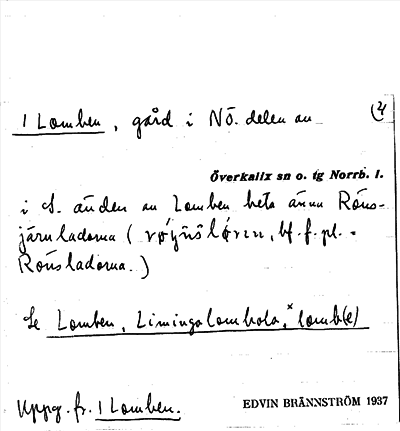 I Lomben, gård i NÖ. delen av (4
Överkalix sn o. tg Norrb. l.
i S. änden av Lomben heta ännu Röns-
järnladorna ( bf. f. pl. =
Rönsladorna.)
Se Lomben, Limingolombolo, *lomb(e)
Uppg. fr. I Lomben.
EDVIN BRÄNNSTRÖM 1937